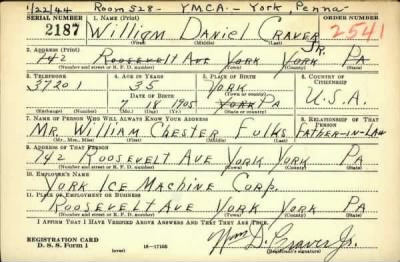 1/22/44 Room 528 - YMCA - York, Penna
SERIAL NUMBER 1. NAME (Print) ORDER NUMBER
2187 William Daniel Craver Jr. 2541
(First) (Middle) (Last)
2. ADDRESS (Print)
742 Roosevelt Ave York York Pa
(Number and street or R. F. D. number) (Town) (County) (State)
3. TELEPHONE 4. AGE IN YEARS 5. PLACE OF BIRTH 6. COUNTRY OF CITIZENSHIP
37201 35 York
(Town or county)
DATE OF BIRTH
7 18 1905 York Pa U.S.A.
(Exchange) (Number) (Mo.) (Day) (Yr.) (State or country)
7. NAME OF PERSON WHO WILL ALWAYS KNOW YOUR ADDRESS 8. RELATIONSHIP OF THAT PERSON
Mr. William Chester Fulks Father-in-Law
(Mr., Mrs., Miss) (First) (Middle) (Last)
9. ADDRESS OF THAT PERSON
742 Roosevelt Ave York York Pa
(Number and street or R. F. D. number) (Town) (County) (State)
10. EMPLOYER'S NAME
York Ice Machine Corp.
11. PLACE OF EMPLOYMENT OR BUSINESS
Roosevelt Ave York York Pa
(Number and street or R. F. D. number) (Town) (County) (State)
I AFFIRM THAT I HAVE VERIFIED ABOVE ANSWERS AND THAT THEY ARE TRUE.
REGISTRATION CARD
D. S. S. Form 1 (over) 16-17105
Wm D. Craver Jr.
(Registrant's signature)